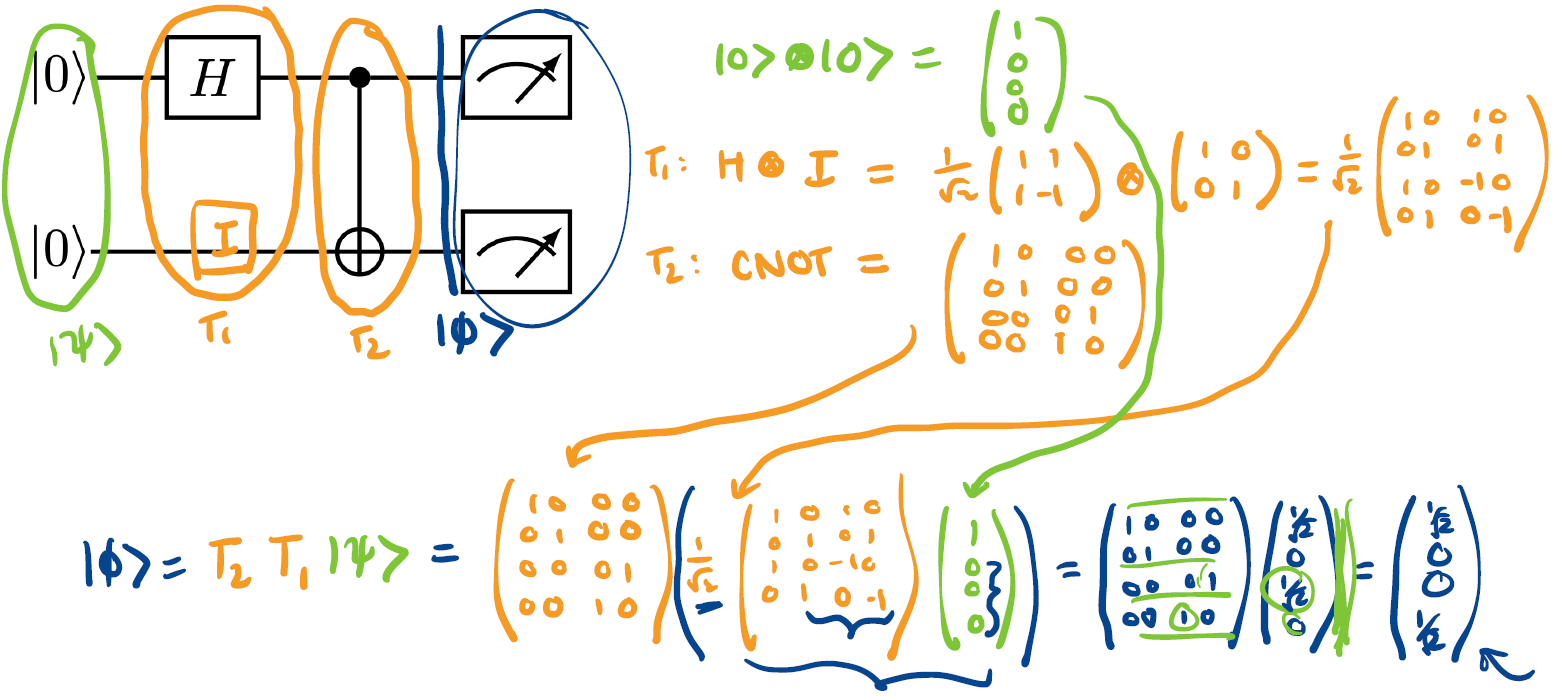 |0⟩ H
|0⟩ I
|ψ⟩ T₁ T₂ |ϕ⟩
|0⟩⊗|0⟩ = (1 0 0 0)
T₁: H ⊗ I = 1/√2 (1 1; 1 -1) ⊗ (1 0; 0 1) = 1/√2 (1 0 1 0; 0 1 0 1; 1 0 -1 0; 0 1 0 -1)
T₂: CNOT = (1 0 0 0; 0 1 0 0; 0 0 0 1; 0 0 1 0)
|ϕ⟩ = T₂ T₁ |ψ⟩ = (1 0 0 0; 0 1 0 0; 0 0 0 1; 0 0 1 0) (1/√2 (1 0 1 0; 0 1 0 1; 1 0 -1 0; 0 1 0 -1) (1 0 0 0)) = (1 0 0 0; 0 1 0 0; 0 0 0 1; 0 0 1 0) (1/√2 0 1/√2 0) = (1/√2 0 0 1/√2)